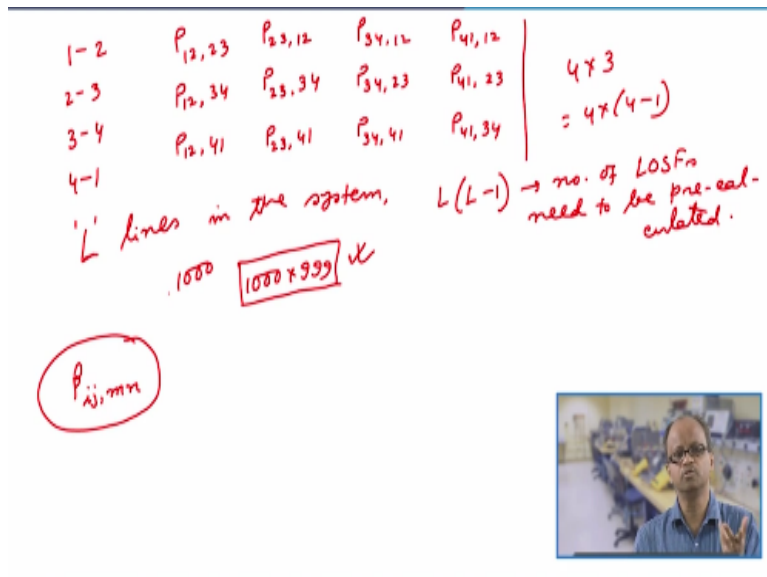 1-2 ρ12,23 ρ23,12 ρ34,12 ρ41,12
2-3 ρ12,34 ρ23,34 ρ34,23 ρ41,23
3-4 ρ12,41 ρ23,41 ρ34,41 ρ41,34
4-1
4×3
= 4×(4-1)
'L' lines in the system, L(L-1) → no. of LOSFs
need to be pre-cal-
culated.
1000 1000×999
ρij,mn